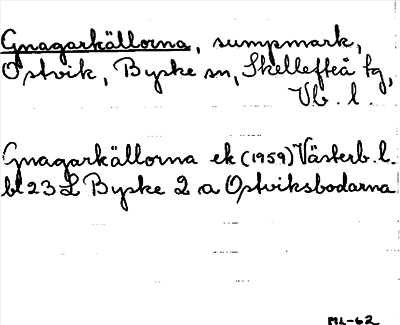 Gnagarkällorna, sumpmark,
Ostvik, Byske sn, Skellefteå tg,
Vb. l.
Gnagarkällorna ek (1959) Västerb. l.
bl 23 L Byske 2 a Ostviksbodarna
ML-62